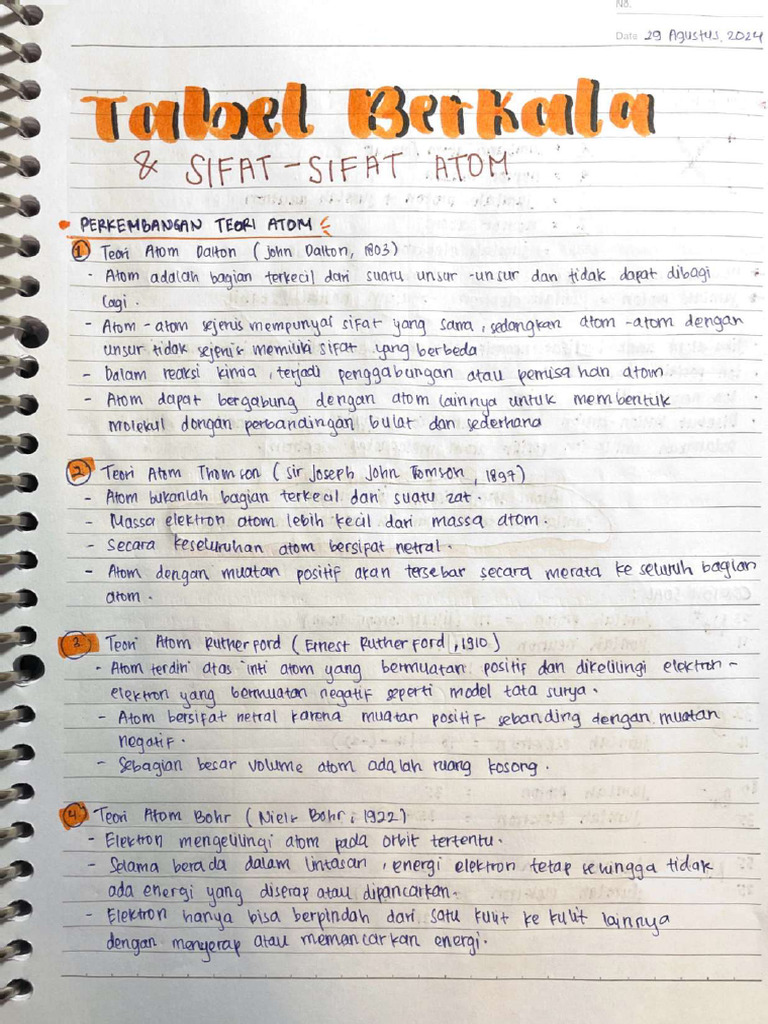 No.
Date 29 Agustus, 2024
Tabel Berkala
& SIFAT-SIFAT ATOM
• PERKEMBANGAN TEORI ATOM
1 Teori Atom Dalton (John Dalton, 1803)
- Atom adalah bagian terkecil dari suatu unsur-unsur dan tidak dapat dibagi
lagi.
- Atom-atom sejenis mempunyas sifat yang sama, sedangkan atom-atom dengan
unsur tidak sejenis memiliki sifat yang berbeda
- Dalam reaksi kimia, terjadi penggabungan atau pemisahan atom
- Atom dapat bergabung dengan atom lainnya untuk membentuk
molekul dongan perbandingan bulat dan sederhana
2 Teori Atom Thomson (Sir Joseph John Tomson, 1897)
- Atom bukanlah bagian terkecil dari suatu zat.
- Massa elektron atom lebih kecil dari massa atom.
- Secara keseluruhan atom bersifat netral.
- Atom dengan muatan positif akan tersebar secara merata ke seluruh bagian
atom.
3 Teori Atom Rutherford (Ernest Rutherford, 1910)
- Atom terdiri atas inti atom yang bermuatan positif dan dikelilingi elektron-
elektron yang bermuatan negatif seperti model tata surya.
- Atom bersifat netral karena muatan positif sebanding dengan muatan
negatif.
- Sebagian besar volume atom adalah ruang kosong.
4 Teori Atom Bohr (Niels Bohr, 1922)
- Elektron mengelilingi atom pada orbit tertentu.
- Selama berada dalam lintasan, energi elektron tetap sehingga tidak
ada energi yang diserap atau dipancarkan.
- Elektron hanya bisa berpindah dari satu kulit ke kulit lainnya
dengan menyerap atau memancarkan energi.